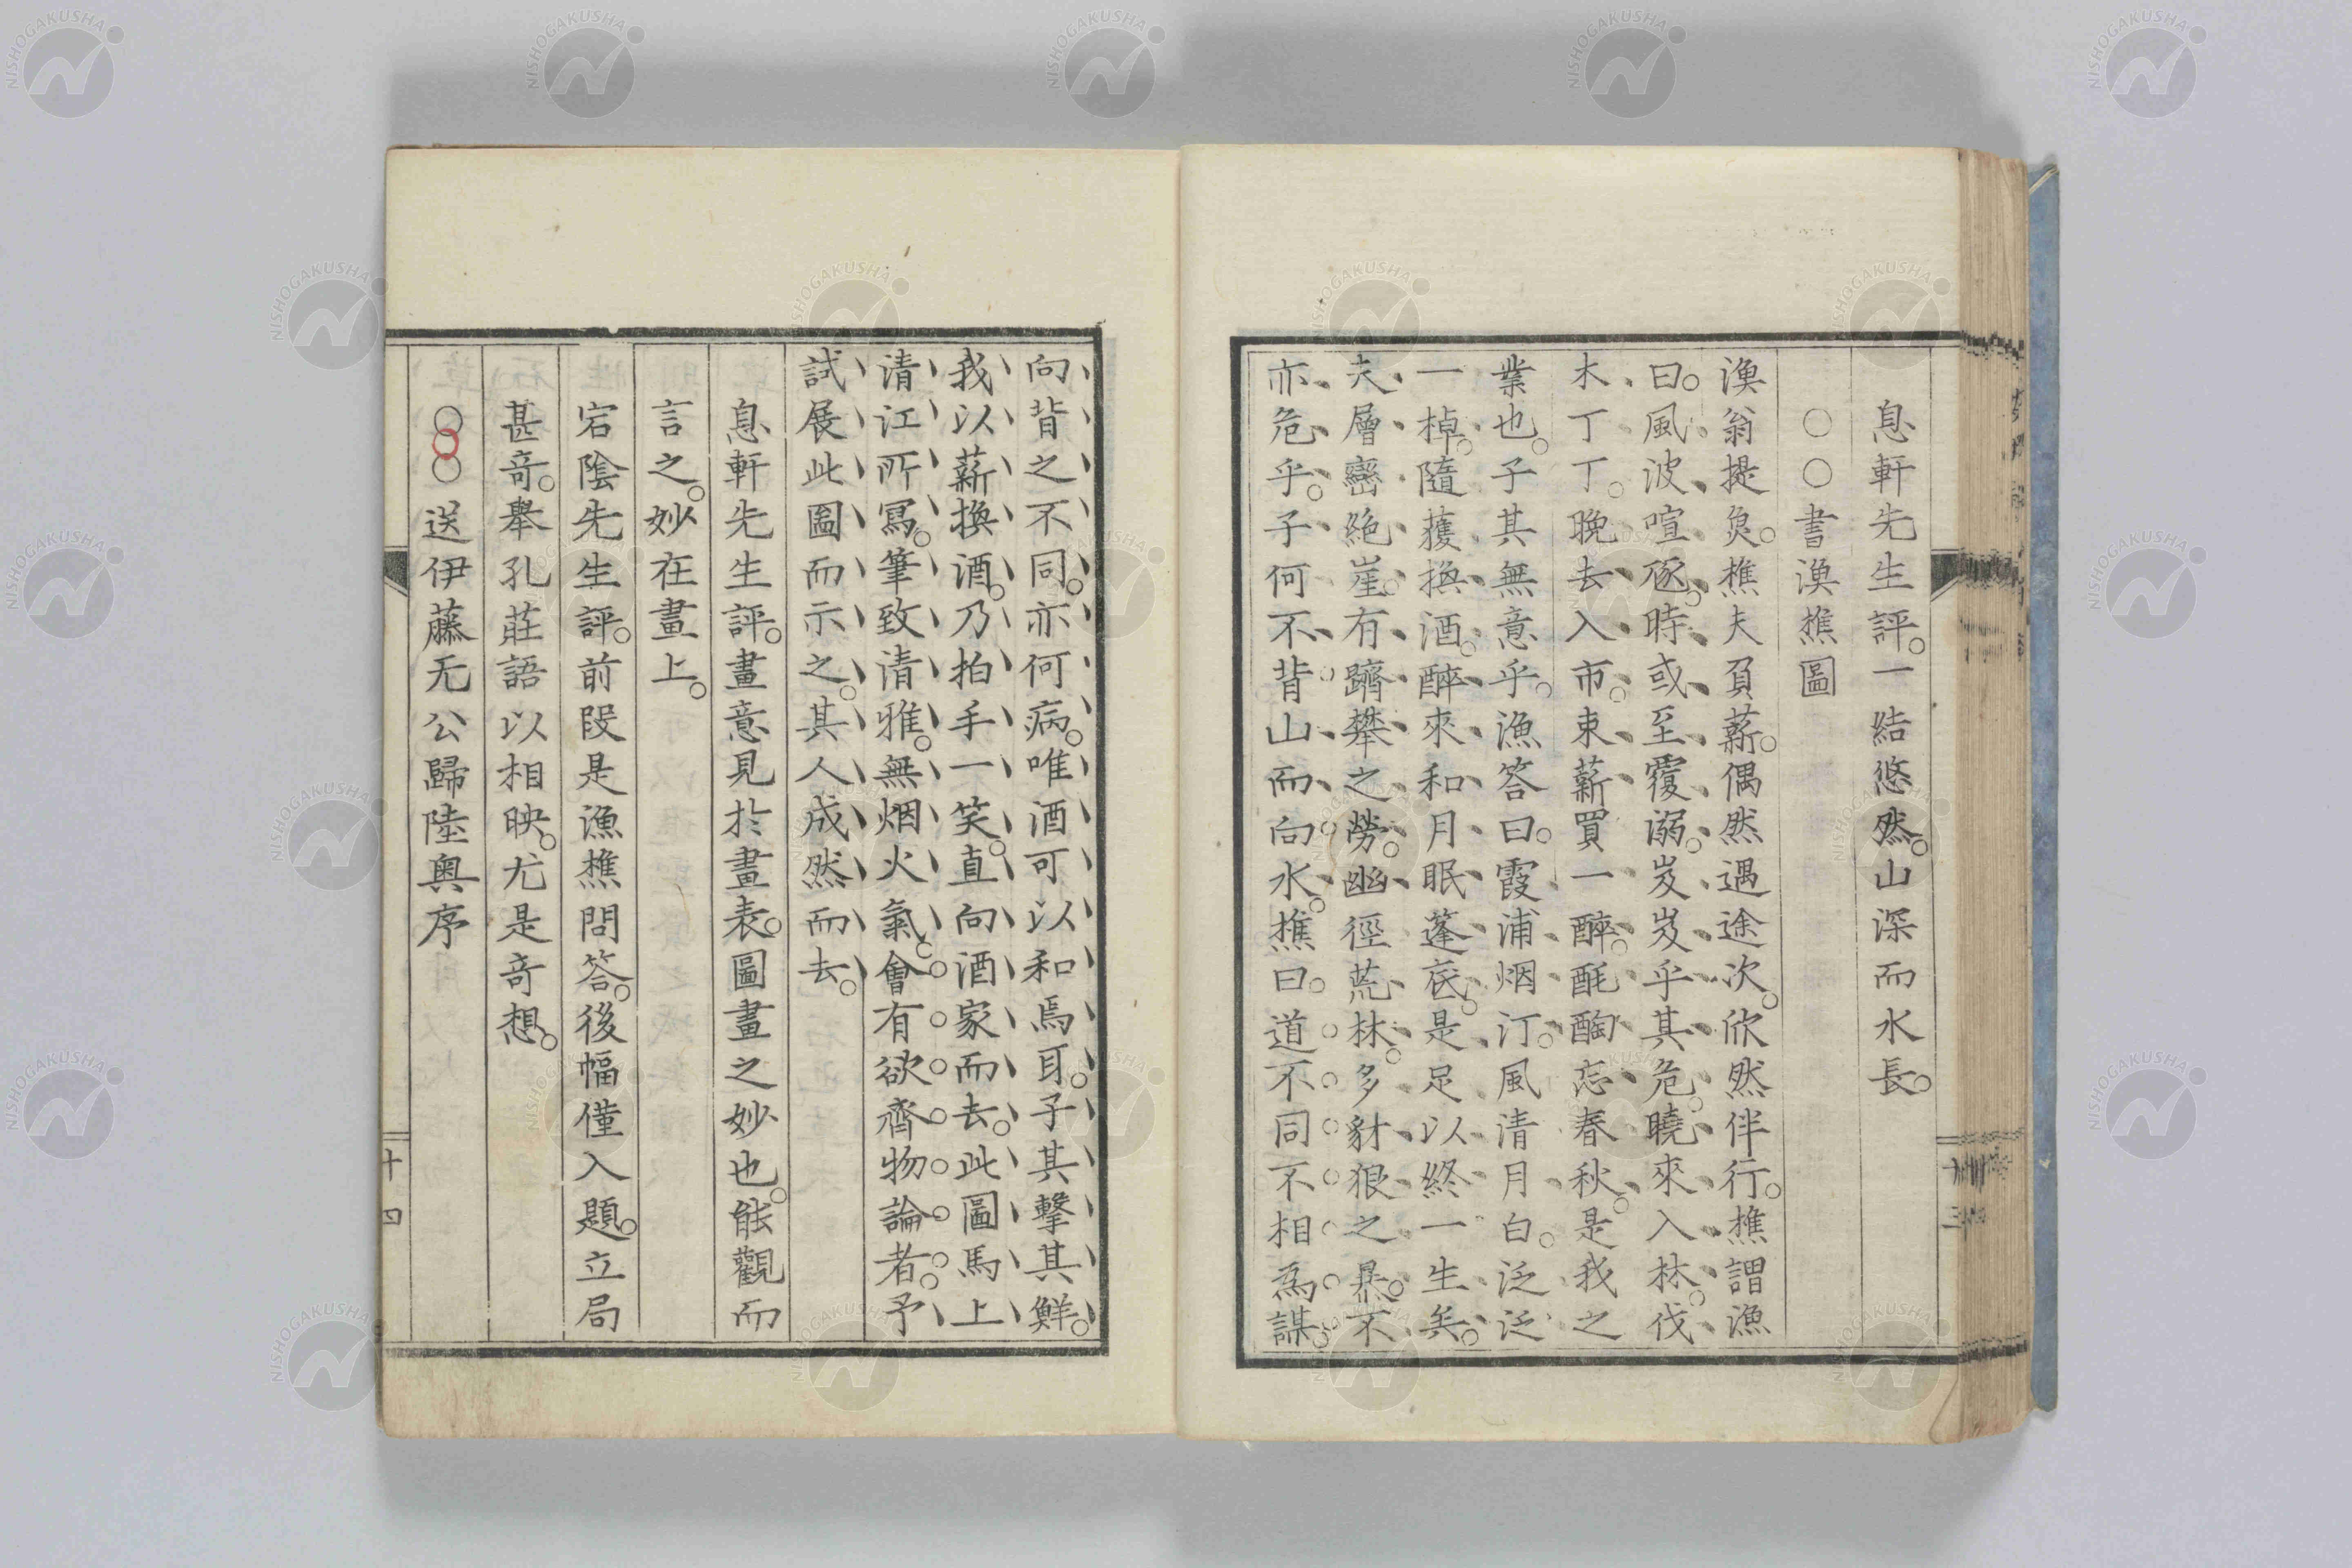 息軒先生評。一結悠然。山深而水長。
○○書漁樵圖
漁翁提魚。樵夫負薪。偶然遇途次。欣然伴行。樵謂漁
曰。風波喧豗。時或至覆溺。岌岌乎其危。曉來入林。伐
木丁丁。晚去入市。束薪買一醉。酕醄忘春秋。是我之
業也。子其無意乎。漁答曰。霞浦烟汀。風清月白。泛泛
一棹。隨獲換酒。醉來和月眠蓬底。是足以終一生矣。
夫層巒絶崖。有躋攀之勞。幽徑荒林。多豺狼之暴。不
亦危乎。子何不背山而向水。樵曰。道不同不相爲謀。
向背之不同。亦何病。唯酒可以和焉耳。子其擊其鮮。
我以薪換酒。乃拍手一笑。直向酒家而去。此圖馬上
清江所寫。筆致清雅。無烟火氣。會有欲齊物論者。予
試展此圖而示之。其人成然而去。
息軒先生評。畫意見於畫表。圖畫之妙也。能觀而
言之。妙在畫上。
宕陰先生評。前段是漁樵問答。後幅僅入題。立局
甚奇。舉孔莊語以相映。尤是奇想。
○○送伊藤无公歸陸奥序
十四
NISHOGAKUSHA